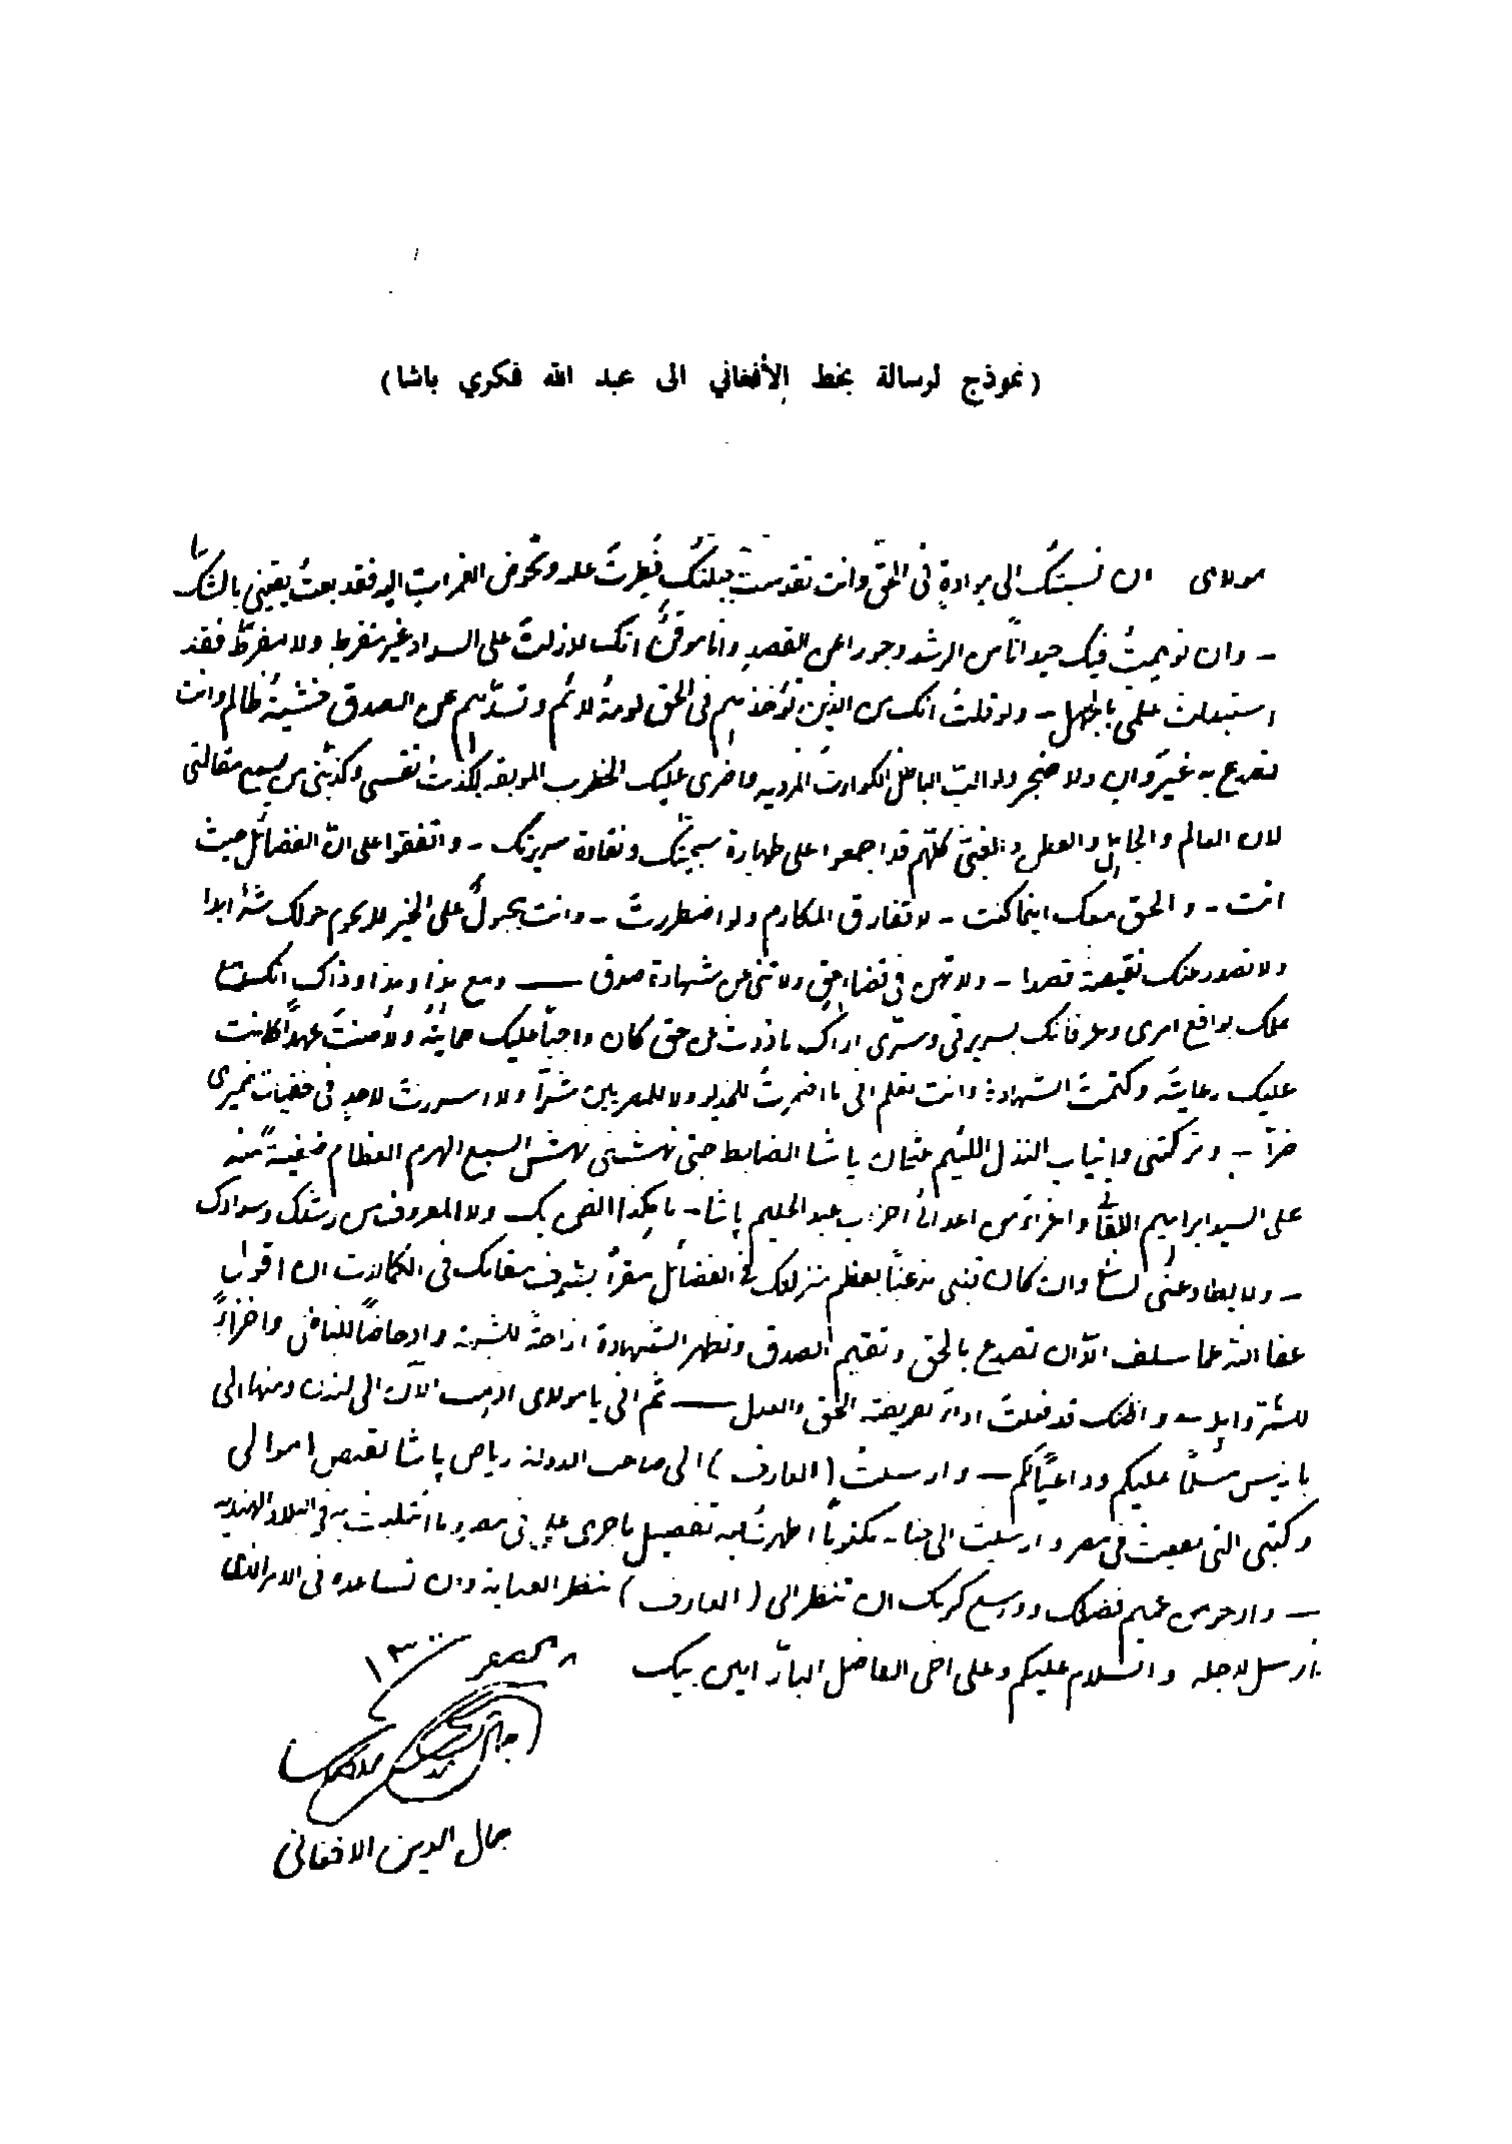 (نموذج لرسالة بخط الأفغاني الى عبد الله فكري باشا)
مولاى ان نسبتك الى هوادةٍ فى الحق وانت تقدست جبلتك فُطِرتَ عليه وتخوض الغمرات اليه فقد بعتُ يقينى بالشك
- وان توهمتُ فيك حيداناً من الرشد وجورا عن القصدِ وانا موقنٌ انك لازلتَ على السداد غير مفرط ولا مفرّط فقد
استبدلت علمى بالجهل - ولو قلتُ انك من الذين تؤخذهم فى الحق لومةُ لائم وتصدّهم عن الصدق خشيةُ ظالم وانت
تصدع به غيرَ وانٍ ولا ضجر ولو البَ الباطل الكوارث المردية واضرى عليك الخطوب الموبقه لكذبتُ نفسى وكذبنى من يسمع مقالتى
لان العالم والجاهل والفطن والغبىّ كلّهم قد اجمعوا على طهارة سجيتك ونقاوة سريرتك - واتفقوا على انّ الفضائل حيث
انت - والحق معك اينما كنت - لا تفارق المكارم ولو اضطررتَ - وانت مجبولٌ على الخير لا يحوم حولك شرٌ ابدا
ولا تصدر عنك نقيصة قصدا - ولا تهن فى قضاء حقٍ ولا تنى عن شهادة صدق — ومع هذا وهذا وذاك انك مع
علمك بواقع امرى وعرفانك بسريرتى وسرّى اراك ما ذدتَ عن حق كان واجباً عليك حمايتُه ولا صنتَ عهداً كانت
عليك رعايتُه وكتمتَ الشهادة وانت تعلم انى ما اضمرتُ للخديو ولا للمصريين شرّاً ولا اسررتُ لاحدٍ فى خفيات ضميرى
ضراً - وتركتنى وانياب النذل اللئيم عثمان باشا الضابط حتى نهشنى نهش السبع الهرم العظام ضغينةً منه
على السيد ابراهيم اللقانى واغراءً من اعدائى احزاب عبد الحليم باشا - ما هكذا الظن بك ولا المعروف من رشدك وسدادك
- ولا يطاوعنى لسانى وان كان قلبى مذعناً بعظم منزلتك فى الفضائل مقراً بشرف مقامك فى الكمالات ان اقول
عفا الله عما سلف الاّ ان تصدع بالحق وتقيم الصدق وتظهر الشهادة ازاحةً للشبهة وادحاضاً للباطل واخزاءً
للشر واهله - واظنك قد فعلتَ اداءً لفريضة الحق والعدل — ثم انى يا مولاى اذهب الآن الى لندن ومنها الى
باريس مسلّماً عليكم وداعياً لكم - وارسلتُ (العارف) الى صاحب الدولة رياض باشا لقبض اموالى
وكتبى التى بقيت فى مصر وارسلت الى جنابه مكتوباً اظهرتُ فيه تفصيل ما جرى علىّ فى مصر وما ابتليت به فى البلاد الهنديه
- وارجو من عميم فضلك ووسيع كرمك ان تنظر الى (العارف) بنظر العناية وان تساعده فى الامر الذى
ارسل لاجله والسلام عليكم وعلى اخى الفاضل البارّ امين بيك
٨ صفر ١٣٠٠
جمال الدين الافغانى